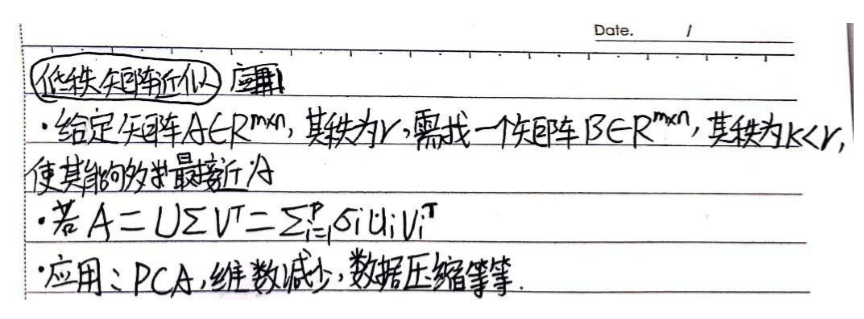 Date. /
低秩矩阵近似 应用
·给定矩阵A∈R^{m×n}, 其秩为r, 需找一个矩阵B∈R^{m×n}, 其秩为k<r,
使其能够最接近A
·若 A = UΣV^T = Σ_{i=1}^{p} σ_i u_i v_i^T
·应用: PCA, 维数减少, 数据压缩等等.